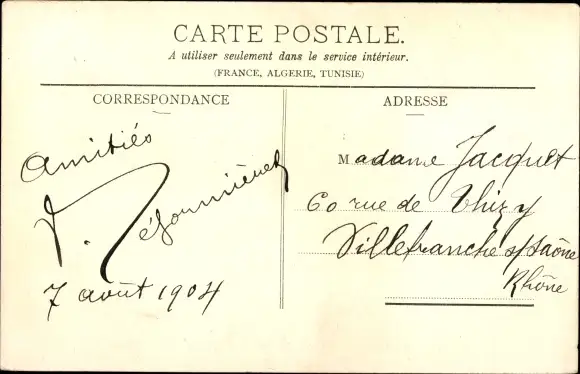 CARTE POSTALE.
A utiliser seulement dans le service intérieur.
(FRANCE, ALGERIE, TUNISIE)
CORRESPONDANCE
Amitiés
7 août 1904
ADRESSE
Madame Jacquet
60 rue de Thizy
Villefranche s/Saône
Rhône